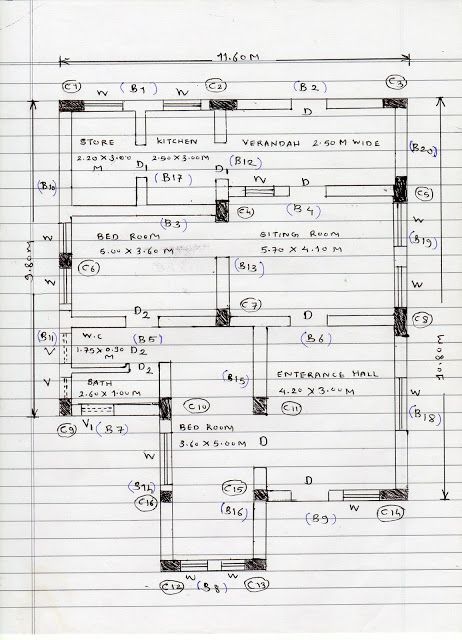 11.60M
C1 W (B1) W C2 (B2) C3
D
STORE KITCHEN VERANDAH 2.50 M WIDE
2.20 X 3.00 M 2.50 X 3.00M
D1 D1 (B12) (B20)
(B10) (B17) W D C5
(B3) C4 (B4)
W BED ROOM SITING ROOM W
5.00 X 3.60 M 5.70 X 4.10 M (B19)
9.80M C6 (B13) W
W
D2 C7 D C8
(B11) W.C (B5) (B6)
V 1.75 X 0.90 M D2 10.80M
D2 (B15) ENTERANCE HALL
V BATH 4.20 X 3.00 M W
2.60 X 1.00M
C10 C11 (B18)
C9 V1 (B7) BED ROOM
W 3.60 X 5.00M D
(B14) C15 D
C16 (B16) W C14
(B9)
W W
C12 (B8) C13